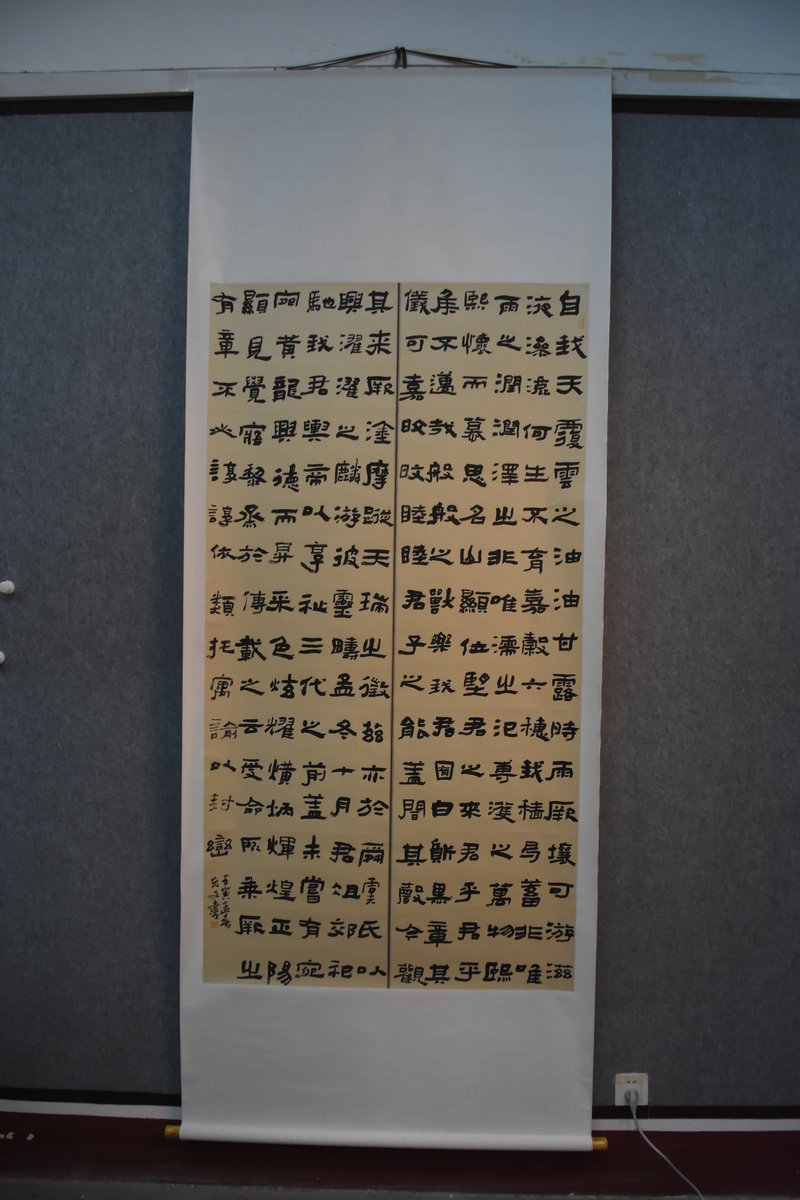 自我天覆雲之油油甘露時雨厥壤可游滋
液滲漉何生不育嘉穀六穗我穡曷蓄非唯
雨之潤潤澤之非唯濡之氾尃濩之萬物熙
熙懷而慕思名山顯位望君之來君乎君乎
侯不邁哉般般之獸樂我君囿白斯黑章其
儀可嘉旼旼睦睦君子之能蓋聞其聲今觀
其來厥塗摩蹤天瑞之徵茲亦於爾虞氏以
興濯濯之麟游彼靈疇孟冬十月君徂郊祀
馳我君輿帝以享祉三代之前蓋未嘗有宛
宛黃龍興德而昇采色炫耀熿炳煇煌正陽
顯見覺寤黎烝於傳載之云受命所乘厥之
有章不必諄諄依類托寓諭以封巒
壬寅孟春